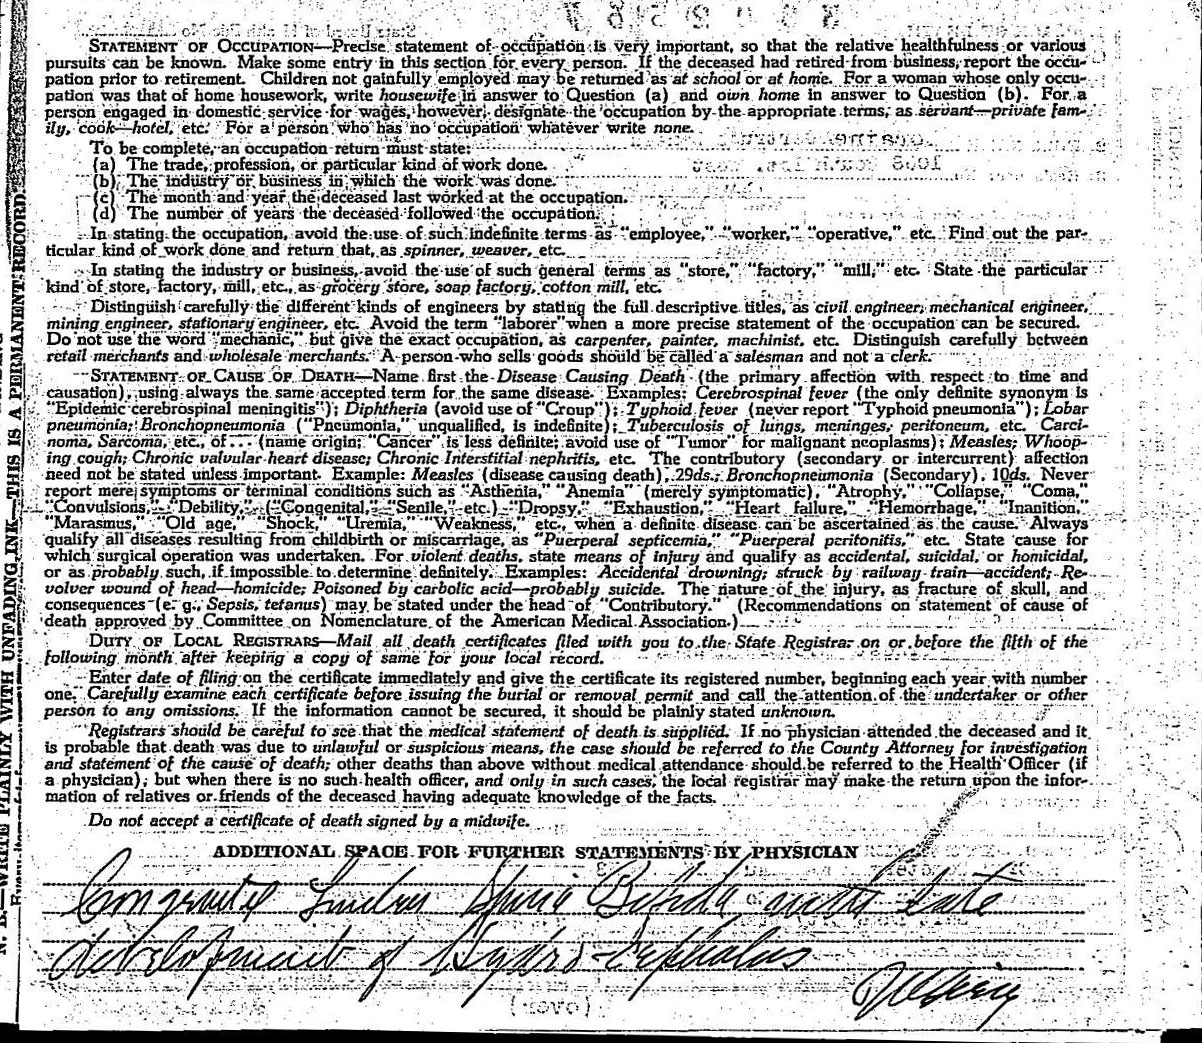 STATEMENT OF OCCUPATION—Precise statement of occupation is very important, so that the relative healthfulness or various
pursuits can be known. Make some entry in this section for every person. If the deceased had retired from business, report the occu-
pation prior to retirement. Children not gainfully employed may be returned as at school or at home. For a woman whose only occu-
pation was that of home housework, write housewife in answer to Question (a) and own home in answer to Question (b). For a
person engaged in domestic service for wages, however, designate the occupation by the appropriate terms, as servant—private fam-
ily, cook—hotel, etc. For a person who has no occupation whatever write none.
To be complete, an occupation return must state:
(a) The trade, profession, or particular kind of work done.
(b) The industry or business in which the work was done.
(c) The month and year the deceased last worked at the occupation.
(d) The number of years the deceased followed the occupation.
In stating the occupation, avoid the use of such indefinite terms as "employee," "worker," "operative," etc. Find out the par-
ticular kind of work done and return that, as spinner, weaver, etc.
In stating the industry or business, avoid the use of such general terms as "store," "factory," "mill," etc. State the particular
kind of store, factory, mill, etc., as grocery store, soap factory, cotton mill, etc.
Distinguish carefully the different kinds of engineers by stating the full descriptive titles, as civil engineer, mechanical engineer,
mining engineer, stationary engineer, etc. Avoid the term "laborer" when a more precise statement of the occupation can be secured.
Do not use the word "mechanic," but give the exact occupation, as carpenter, painter, machinist, etc. Distinguish carefully between
retail merchants and wholesale merchants. A person who sells goods should be called a salesman and not a clerk.
STATEMENT OF CAUSE OF DEATH—Name first the Disease Causing Death (the primary affection with respect to time and
causation), using always the same accepted term for the same disease. Examples: Cerebrospinal fever (the only definite synonym is
"Epidemic cerebrospinal meningitis"); Diphtheria (avoid use of "Croup"); Typhoid fever (never report "Typhoid pneumonia"); Lobar
pneumonia; Bronchopneumonia ("Pneumonia," unqualified, is indefinite); Tuberculosis of lungs, meninges, peritoneum, etc. Carci-
noma, Sarcoma, etc., of ... (name origin; "Cancer" is less definite; avoid use of "Tumor" for malignant neoplasms); Measles; Whoop-
ing cough; Chronic valvular heart disease; Chronic Interstitial nephritis, etc. The contributory (secondary or intercurrent) affection
need not be stated unless important. Example: Measles (disease causing death), 29ds.; Bronchopneumonia (Secondary), 10ds. Never
report mere symptoms or terminal conditions such as "Asthenia," "Anemia" (merely symptomatic), "Atrophy," "Collapse," "Coma,"
"Convulsions," "Debility," ("Congenital," "Senile," etc.) "Dropsy," "Exhaustion," "Heart failure," "Hemorrhage," "Inanition,"
"Marasmus," "Old age," "Shock," "Uremia," "Weakness," etc., when a definite disease can be ascertained as the cause. Always
qualify all diseases resulting from childbirth or miscarriage, as "Puerperal septicemia," "Puerperal peritonitis," etc. State cause for
which surgical operation was undertaken. For violent deaths, state means of injury and qualify as accidental, suicidal, or homicidal,
or as probably such, if impossible to determine definitely. Examples: Accidental drowning; struck by railway train—accident; Re-
volver wound of head—homicide; Poisoned by carbolic acid—probably suicide. The nature of the injury, as fracture of skull, and
consequences (e. g., Sepsis, tetanus) may be stated under the head of "Contributory." (Recommendations on statement of cause of
death approved by Committee on Nomenclature of the American Medical Association.)
DUTY OF LOCAL REGISTRARS—Mail all death certificates filed with you to the State Registrar on or before the fifth of the
following month after keeping a copy of same for your local record.
Enter date of filing on the certificate immediately and give the certificate its registered number, beginning each year with number
one. Carefully examine each certificate before issuing the burial or removal permit and call the attention of the undertaker or other
person to any omissions. If the information cannot be secured, it should be plainly stated unknown.
Registrars should be careful to see that the medical statement of death is supplied. If no physician attended the deceased and it
is probable that death was due to unlawful or suspicious means, the case should be referred to the County Attorney for investigation
and statement of the cause of death; other deaths than above without medical attendance should be referred to the Health Officer (if
a physician); but when there is no such health officer, and only in such cases, the local registrar may make the return upon the infor-
mation of relatives or friends of the deceased having adequate knowledge of the facts.
Do not accept a certificate of death signed by a midwife.
ADDITIONAL SPACE FOR FURTHER STATEMENTS BY PHYSICIAN
Congenital Spina Bifida, with late
development of Hydro-cephalus
N. B.—WRITE PLAINLY WITH UNFADING INK—THIS IS A PERMANENT RECORD.